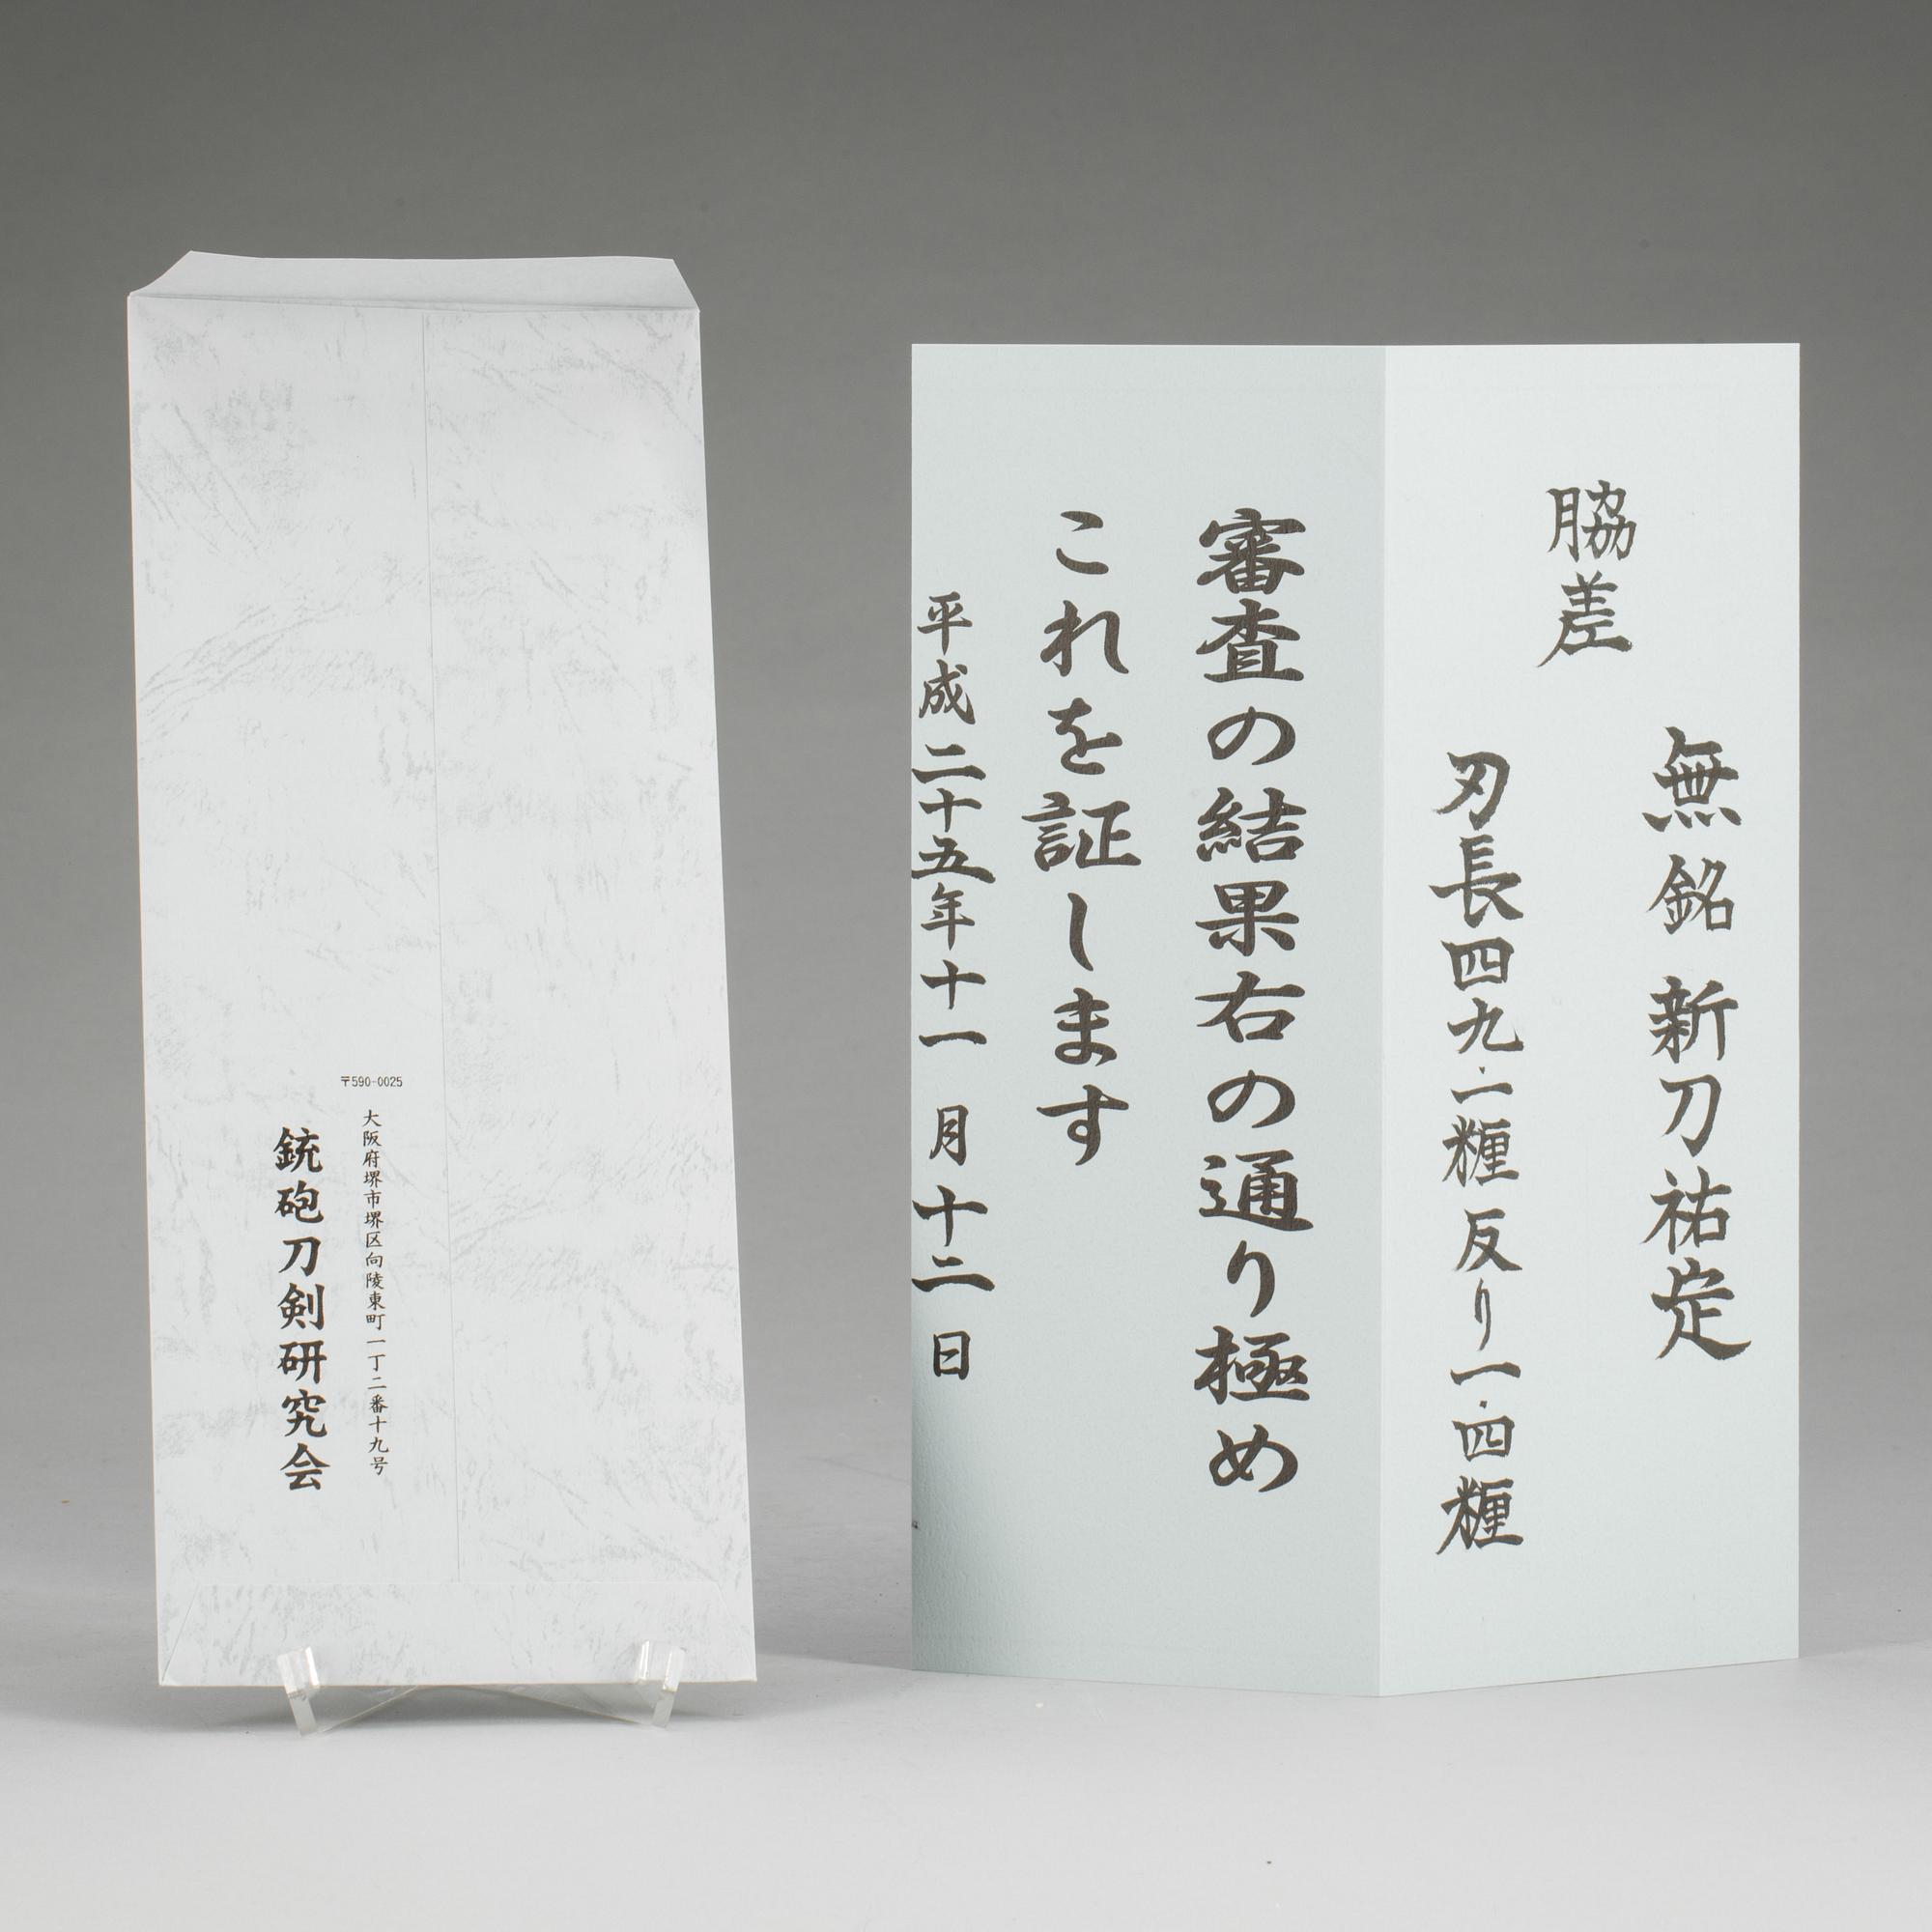 脇差
無銘 新刀祐定
刃長四九・一糎 反り一・四糎
審査の結果右の通り極め
これを証します
平成二十五年十一月十二日
〒590-0025
大阪府堺市堺区向陵東町一丁二番十九号
銃砲刀剣研究会